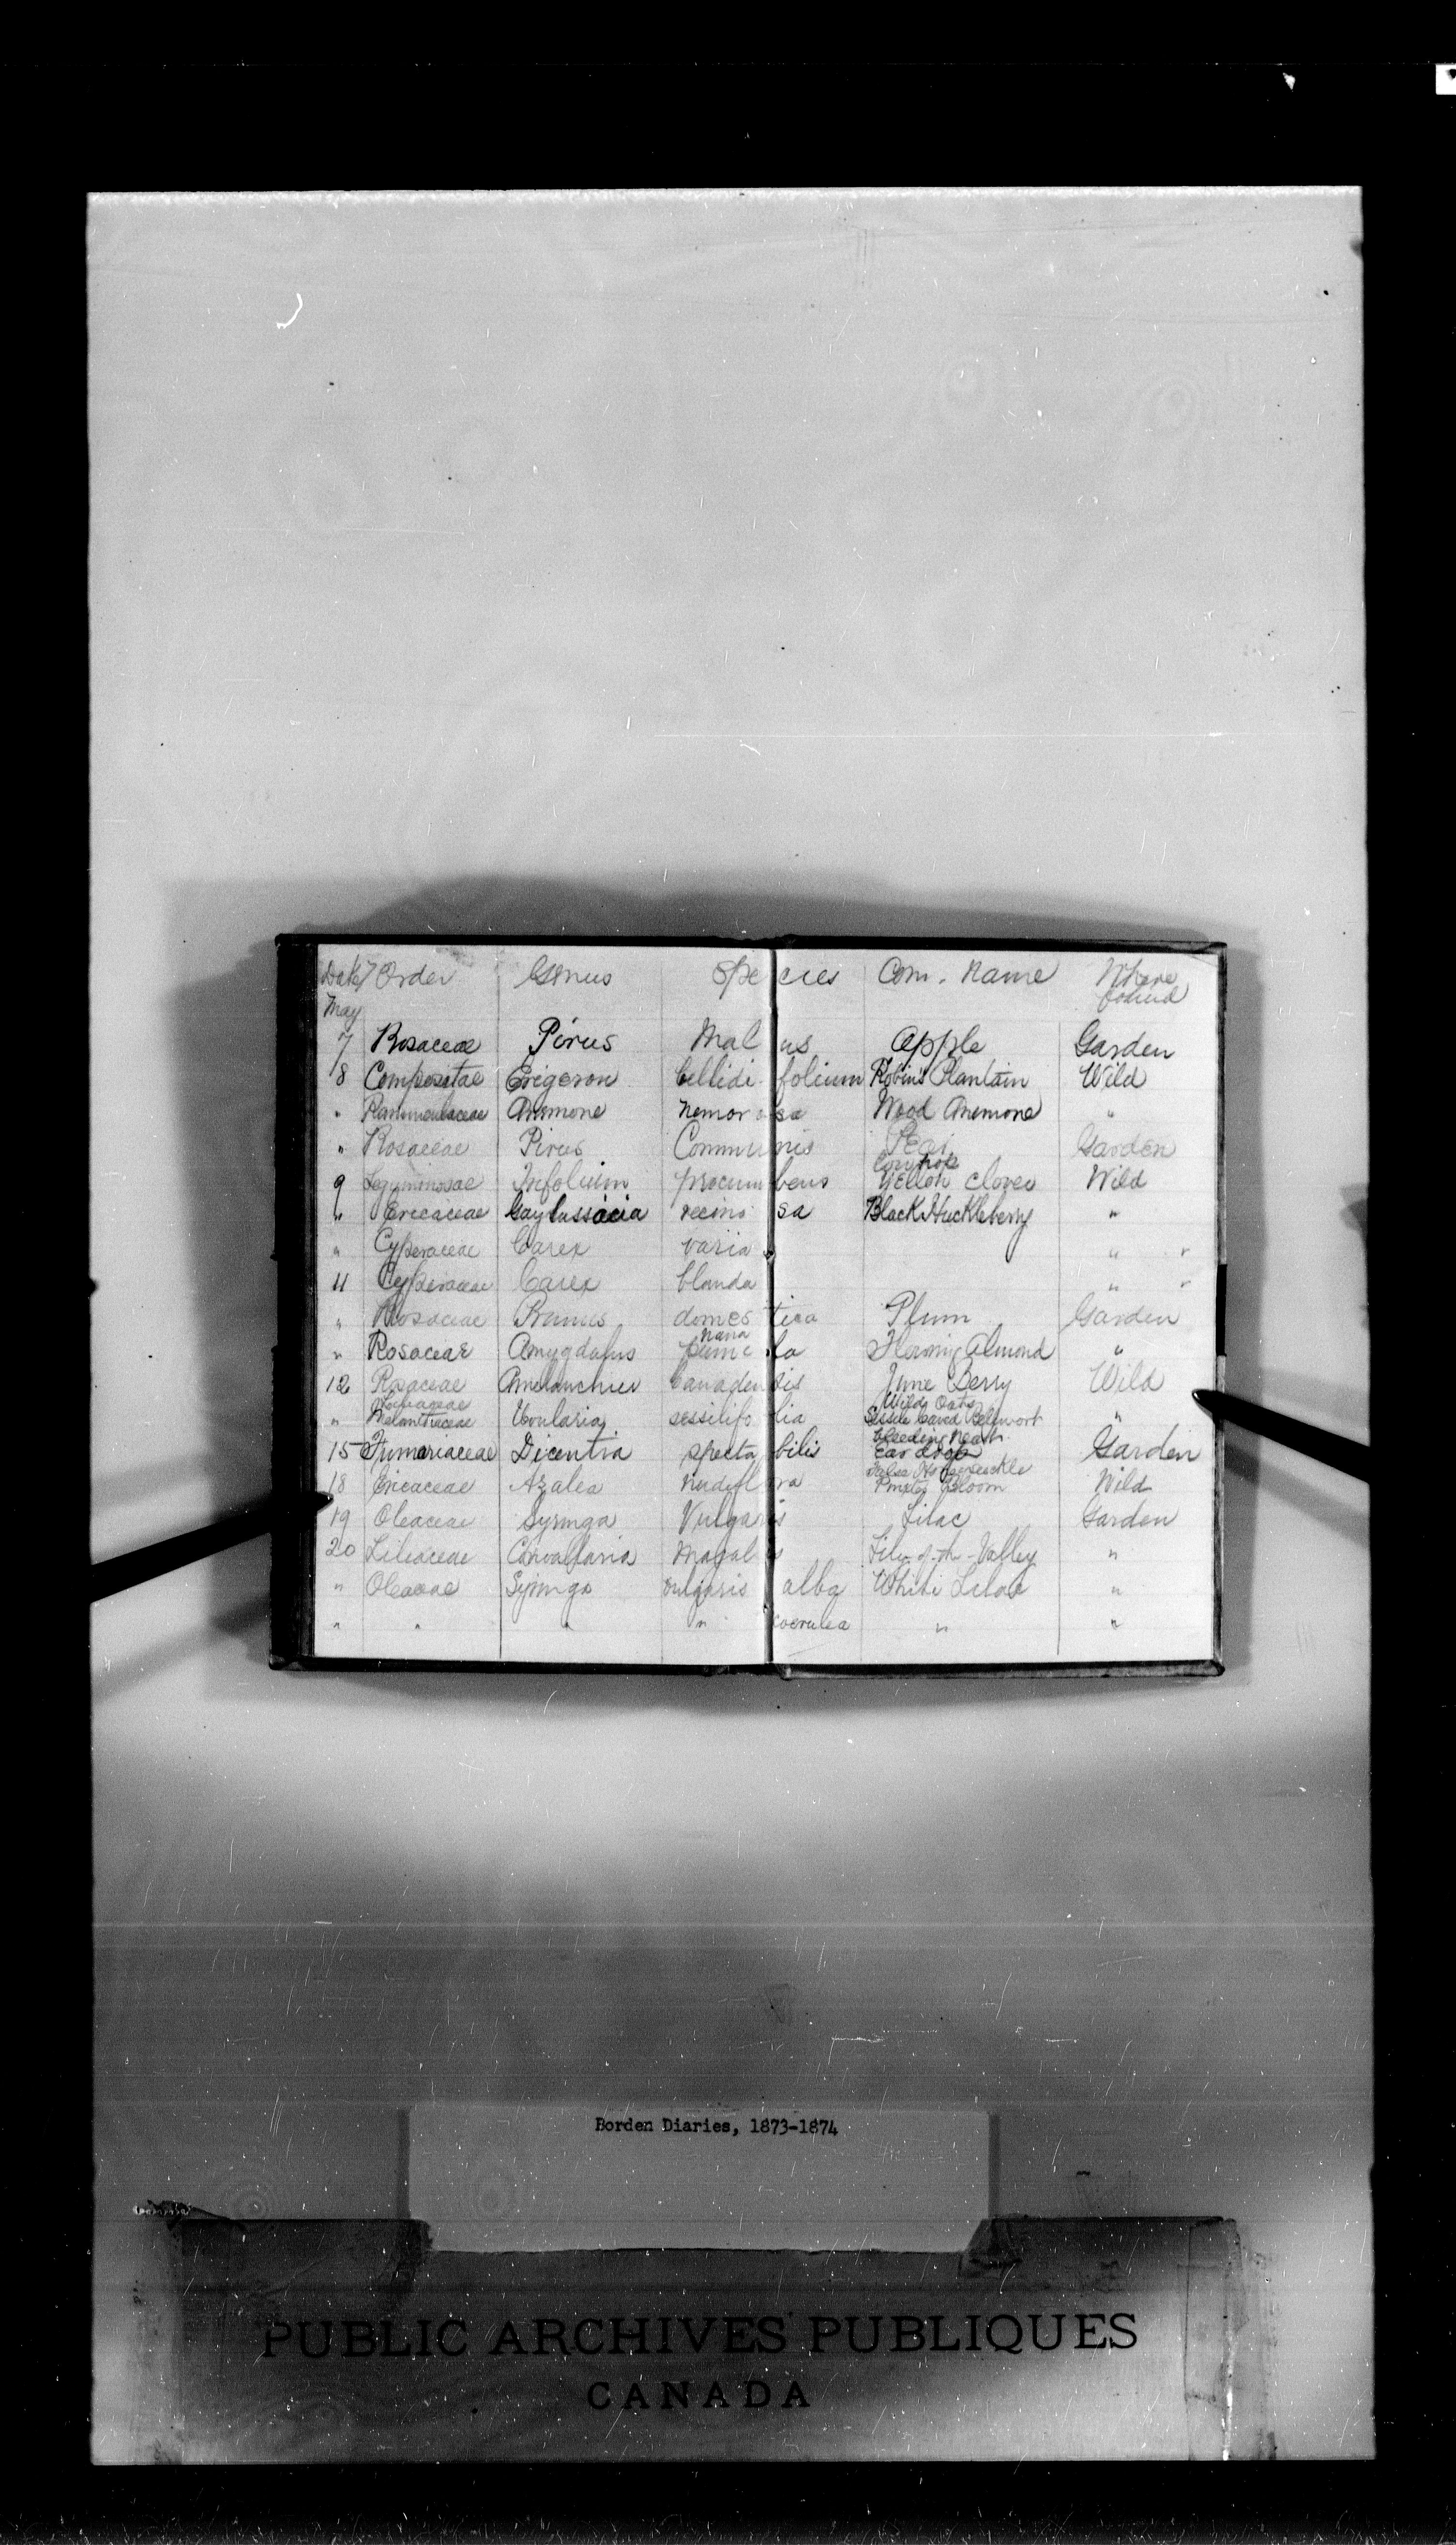 Date Order Genus Species Com. Name Where found
May
7 Rosaceae Pirus Malus Apple Garden
8 Compositae Erigeron bellidifolium Robin's Plantain Wild
" Ranunculaceae Anemone nemorosa Wood Anemone "
" Rosaceae Pirus Communis Pear Garden
9 Leguminosae Trifolium procumbens Low hop Yellow Clover Wild
" Ericaceae Gaylussacia recinosa Black Huckleberry "
" Cyperaceae Carex varia " "
11 Cyperaceae Carex blanda " "
" Rosaceae Prunus domestica Plum Garden
" Rosaceae Amygdalus pumila nana Flowring Almond "
12 Rosaceae Amelanchier Canadensis June Berry Wild
" Liliaceae Melanthaceae Uvularia sessilifolia Wild Oats Sessile leaved Bellwort "
15 Fumariaceae Dicentra spectabilis Bleeding Heart Ear drop Garden
18 Ericaceae Azalea nudiflora False Honeysuckle Pinxter Bloom Wild
19 Oleaceae Syringa Vulgaris Lilac Garden
20 Liliaceae Convallaria Magalis Lily-of-the-Valley "
" Oleaceae Syringa vulgaris alba White Lilac "
" " " " coerulea " "
Borden Diaries, 1873-1874
PUBLIC ARCHIVES PUBLIQUES
CANADA